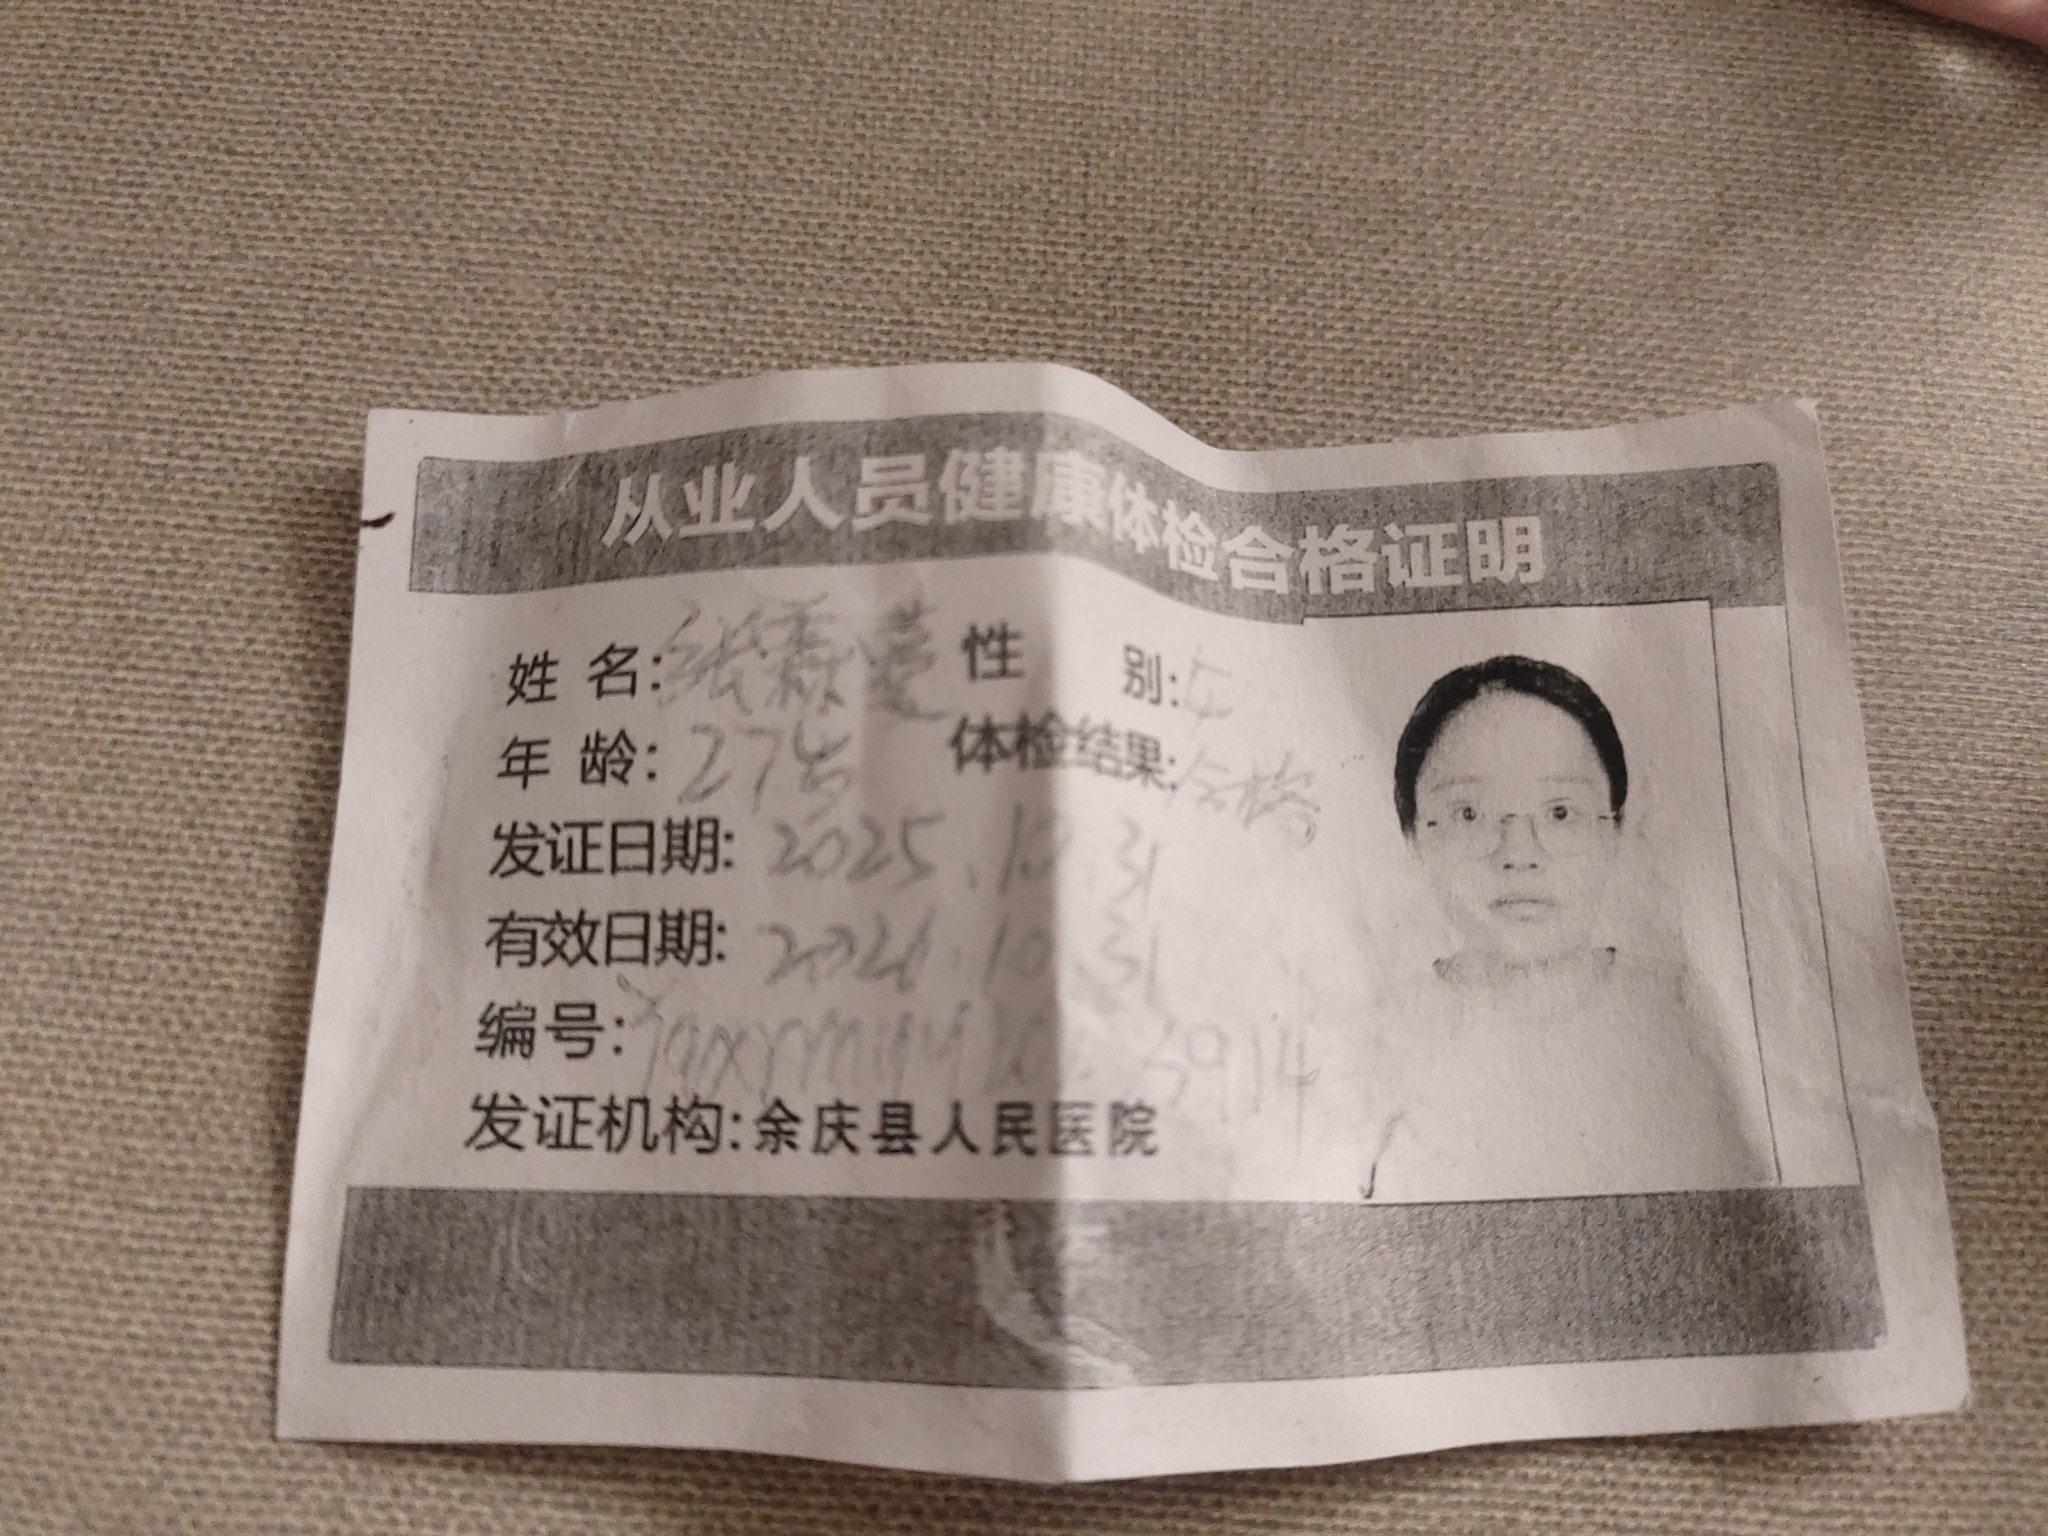 从业人员健康体检合格证明
姓名:张霖蔓 性别:女
年龄:27岁 体检结果:合格
发证日期:2025.10.31
有效日期:2026.10.31
编号: 3914
发证机构:余庆县人民医院